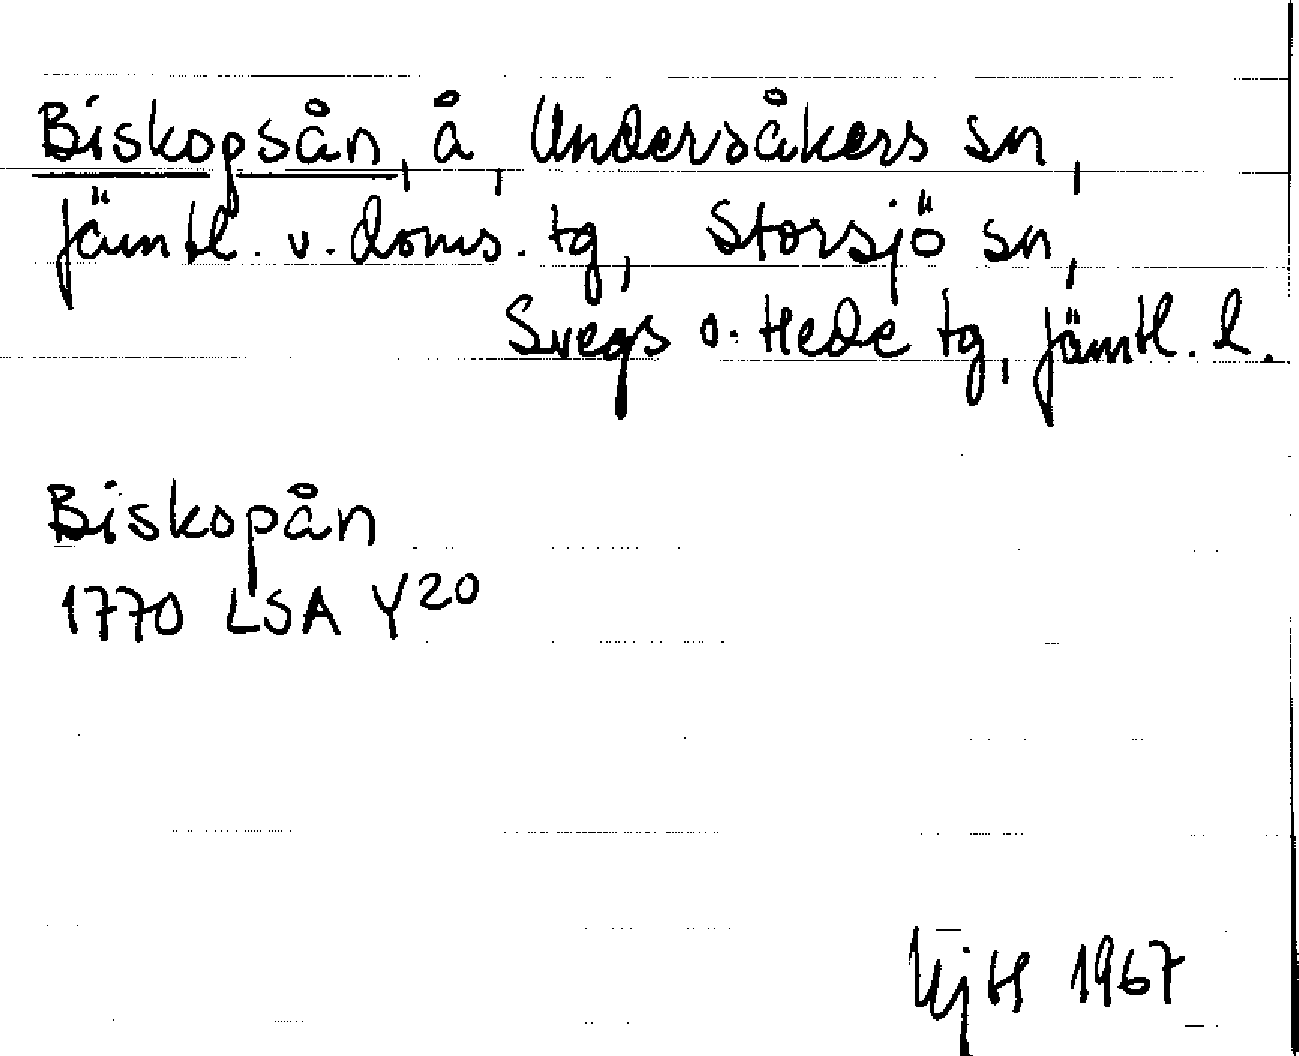 Biskopsån, å, Undersåkers sn,
Jämtl. v. doms. tg, Storsjö sn,
Svegs o. Hede tg, Jämtl. l.
Biskopån
1770 LSA Y20
1967